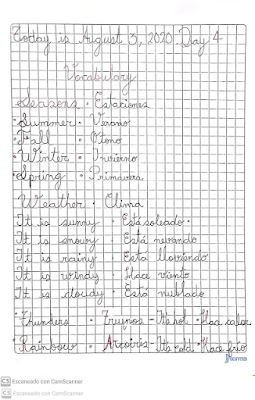 Today is August 3, 2020 Day 4
Vocabulary
Seasons • Estaciones
• Summer • Verano
• Fall • Otono
• Winter • Invierno
• Spring • Primavera
Weather • Clima
It is sunny • Está soleado •
It is snowy • Está nevando
It is rainy • Esta lloviendo
It is windy • Hace viento
It is cloudy • Está nublado
• Thunders • Truenos - Its hot • Hace calor
• Rainbow • Arcoiris - Its cold • Hace frio
Norma
CS Escaneado con CamScanner
CS Escaneado con CamScanner